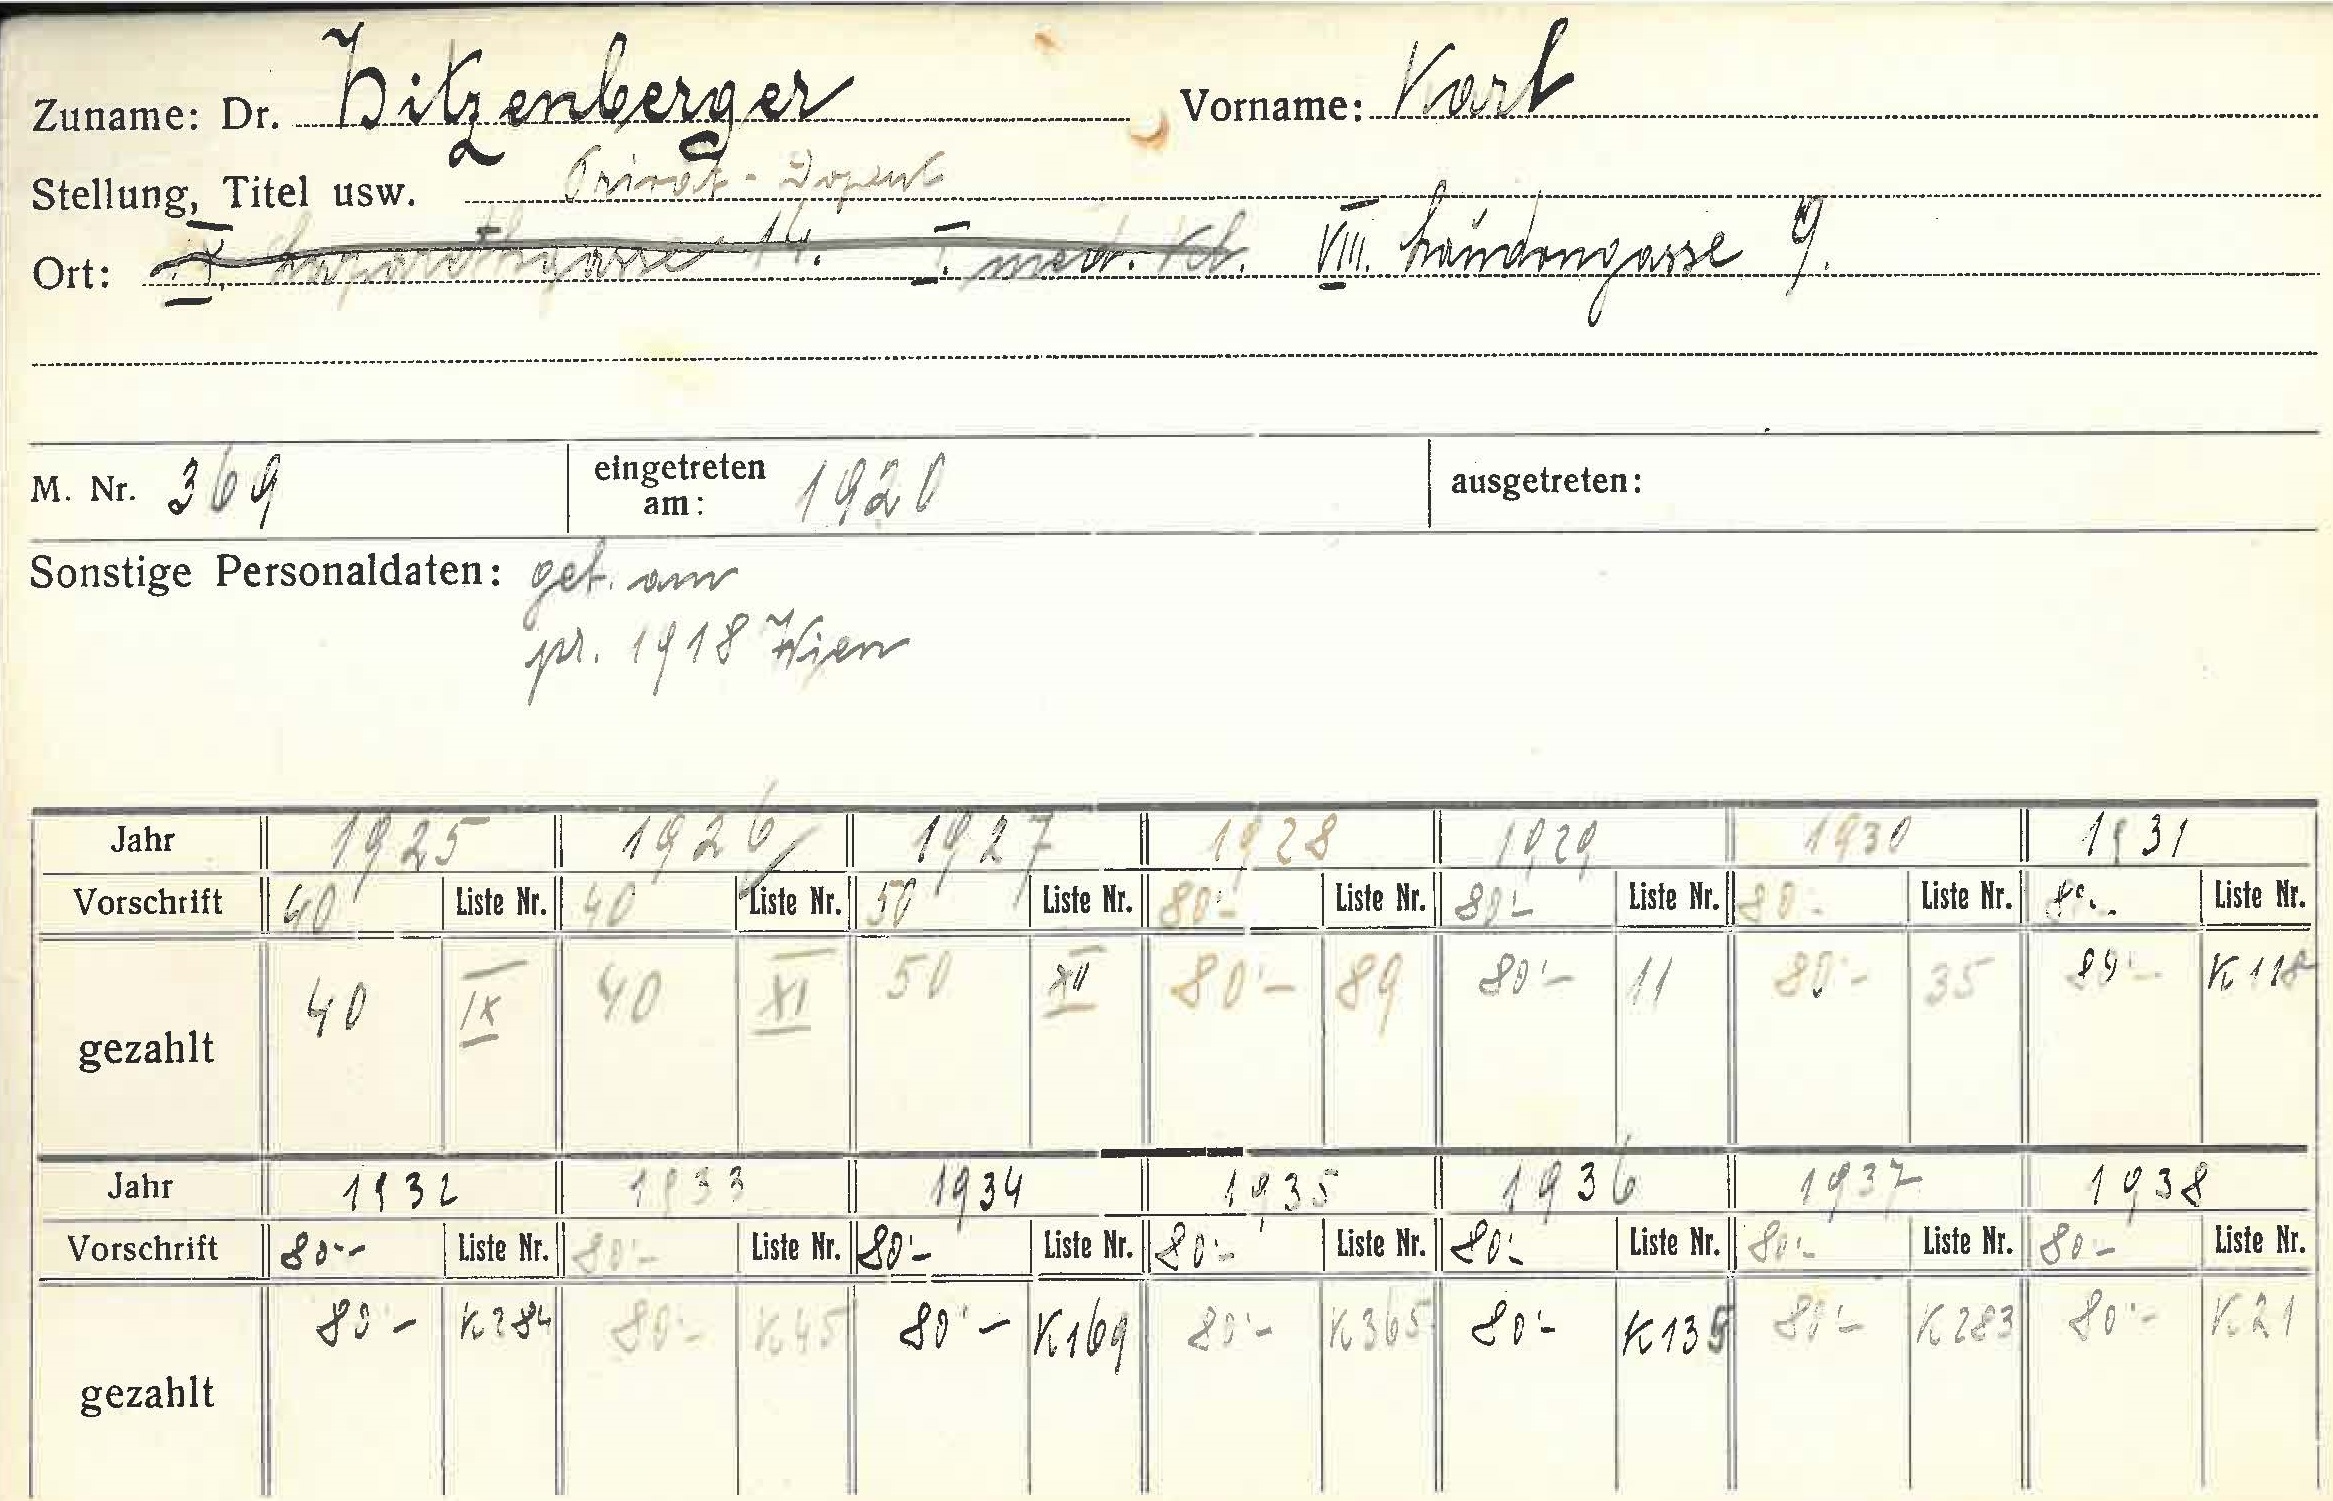 Zuname: Dr. Hitzenberger Vorname: Karl
Stellung, Titel usw. Privat-Dozent
Ort: IX. Lazarethgasse 14. I. med. Kl. VIII. Laudongasse 9.
M. Nr. 369 eingetreten am: 1920 ausgetreten:
Sonstige Personaldaten: geb. am
pr. 1918 Wien
Jahr 1925 1926 1927 1928 1929 1930 1931
Vorschrift 40 Liste Nr. 40 Liste Nr. 50 Liste Nr. 80'- Liste Nr. 80'- Liste Nr. 80.- Liste Nr. 80.- Liste Nr.
gezahlt 40 IX 40 XI 50 XII 80'- 89 80'- 11 80'- 35 80'- K 118
Jahr 1932 1933 1934 1935 1936 1937 1938
Vorschrift 80'- Liste Nr. 80'- Liste Nr. 80'- Liste Nr. 80'- Liste Nr. 80'- Liste Nr. 80'- Liste Nr. 80- Liste Nr.
gezahlt 80'- K284 80'- K45 80'- K169 80'- K365 80'- K135 80'- K283 80'- K21